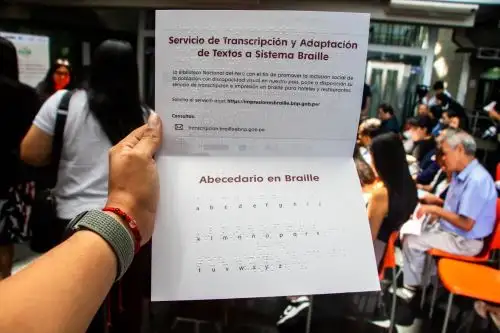 Servicio de Transcripción y Adaptación
de Textos a Sistema Braille
La Biblioteca Nacional del Perú con el fin de promover la inclusión social de
la población con discapacidad visual en nuestro país, pone a disposición su
servicio de transcripción e impresión en braille para hoteles y restaurantes.
Solicita el servicio aquí: https://impresionesbraille.bnp.gob.pe/
Consultas:
transcripcion.braille@bnp.gob.pe
Abecedario en Braille
a b c d e f g h i j
k l m n ñ o p q r s
t u v w x y z